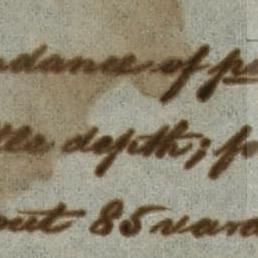 ndance of p
tle depth; f
out 85 vara